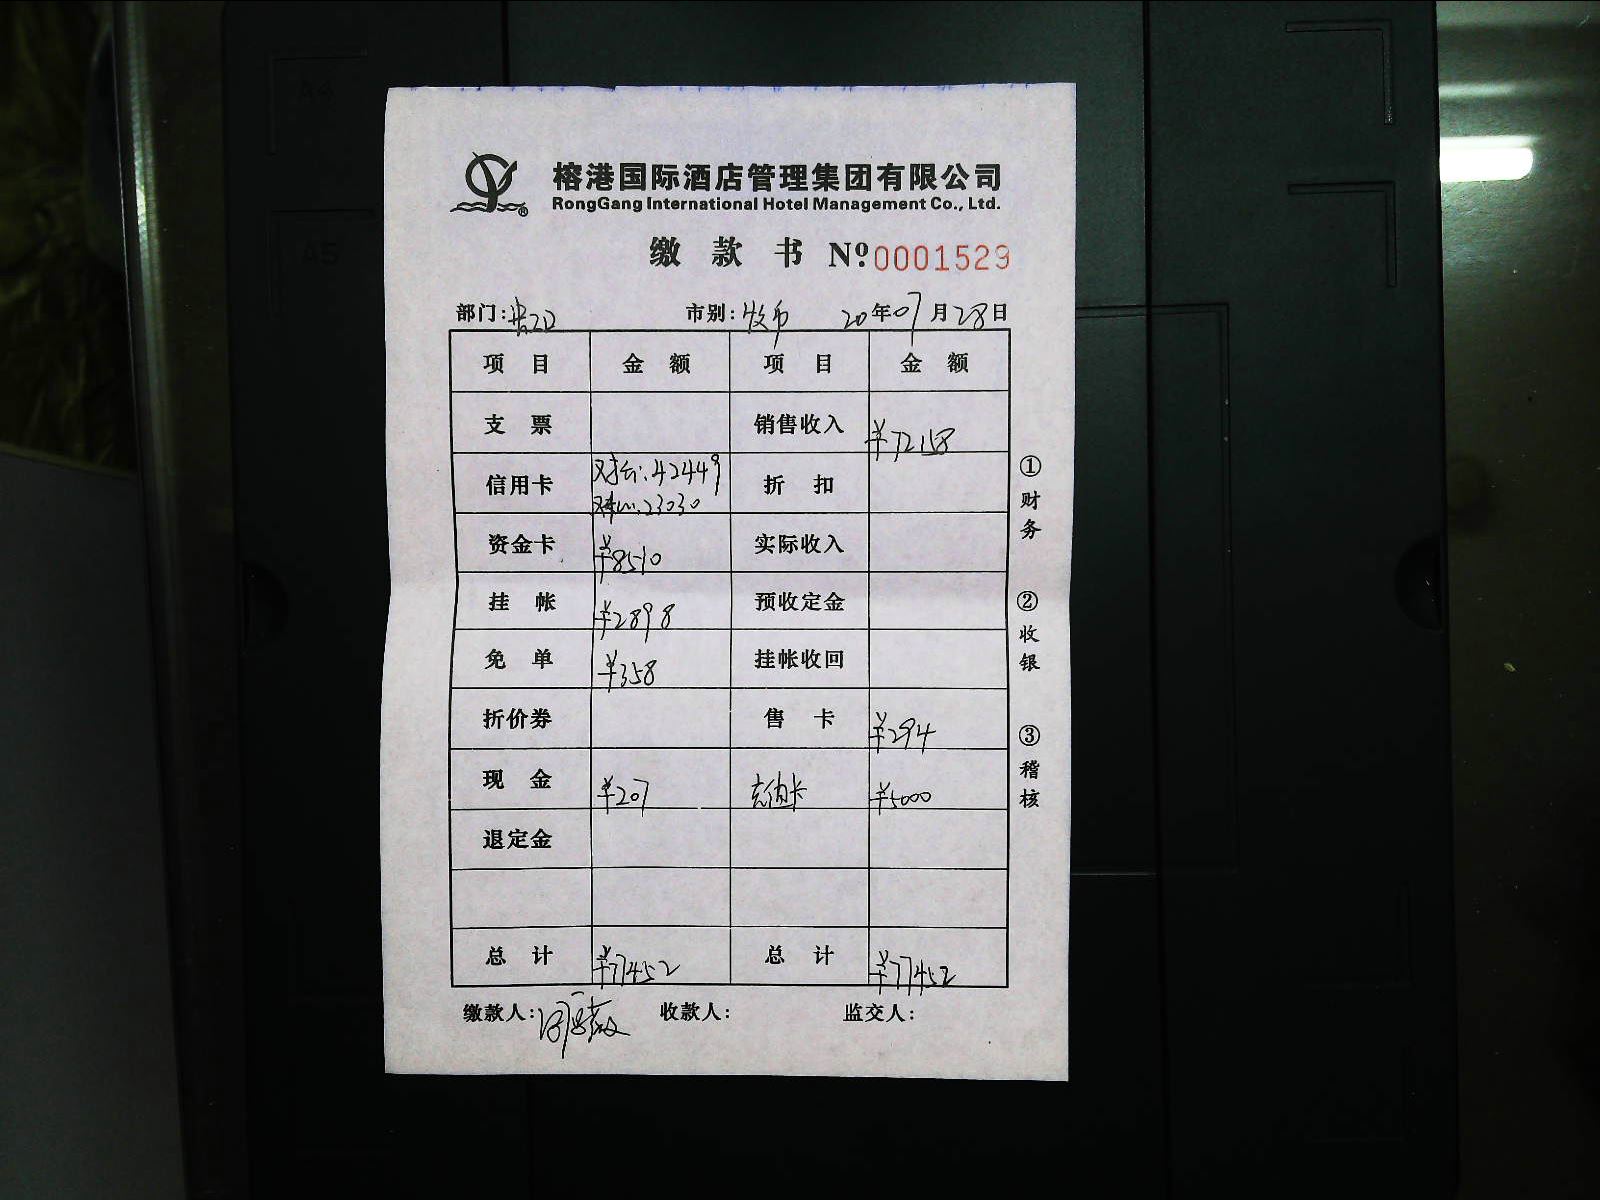 榕港国际酒店管理集团有限公司
RongGang International Hotel Management Co., Ltd.
缴款书 Nº 0001529
部门: 市别:收市 20年07月28日
项目 金额 项目 金额
支票 销售收入 ¥72158
信用卡 42449 23030 折扣
资金卡 ¥8510 实际收入
挂帐 ¥2898 预收定金
免单 ¥358 挂帐收回
折价券 售卡 ¥294
现金 ¥207 充值卡 ¥5000
退定金
总计 ¥77452 总计 ¥77452
缴款人: 收款人: 监交人:
①财务
②收银
③稽核
A4
A5